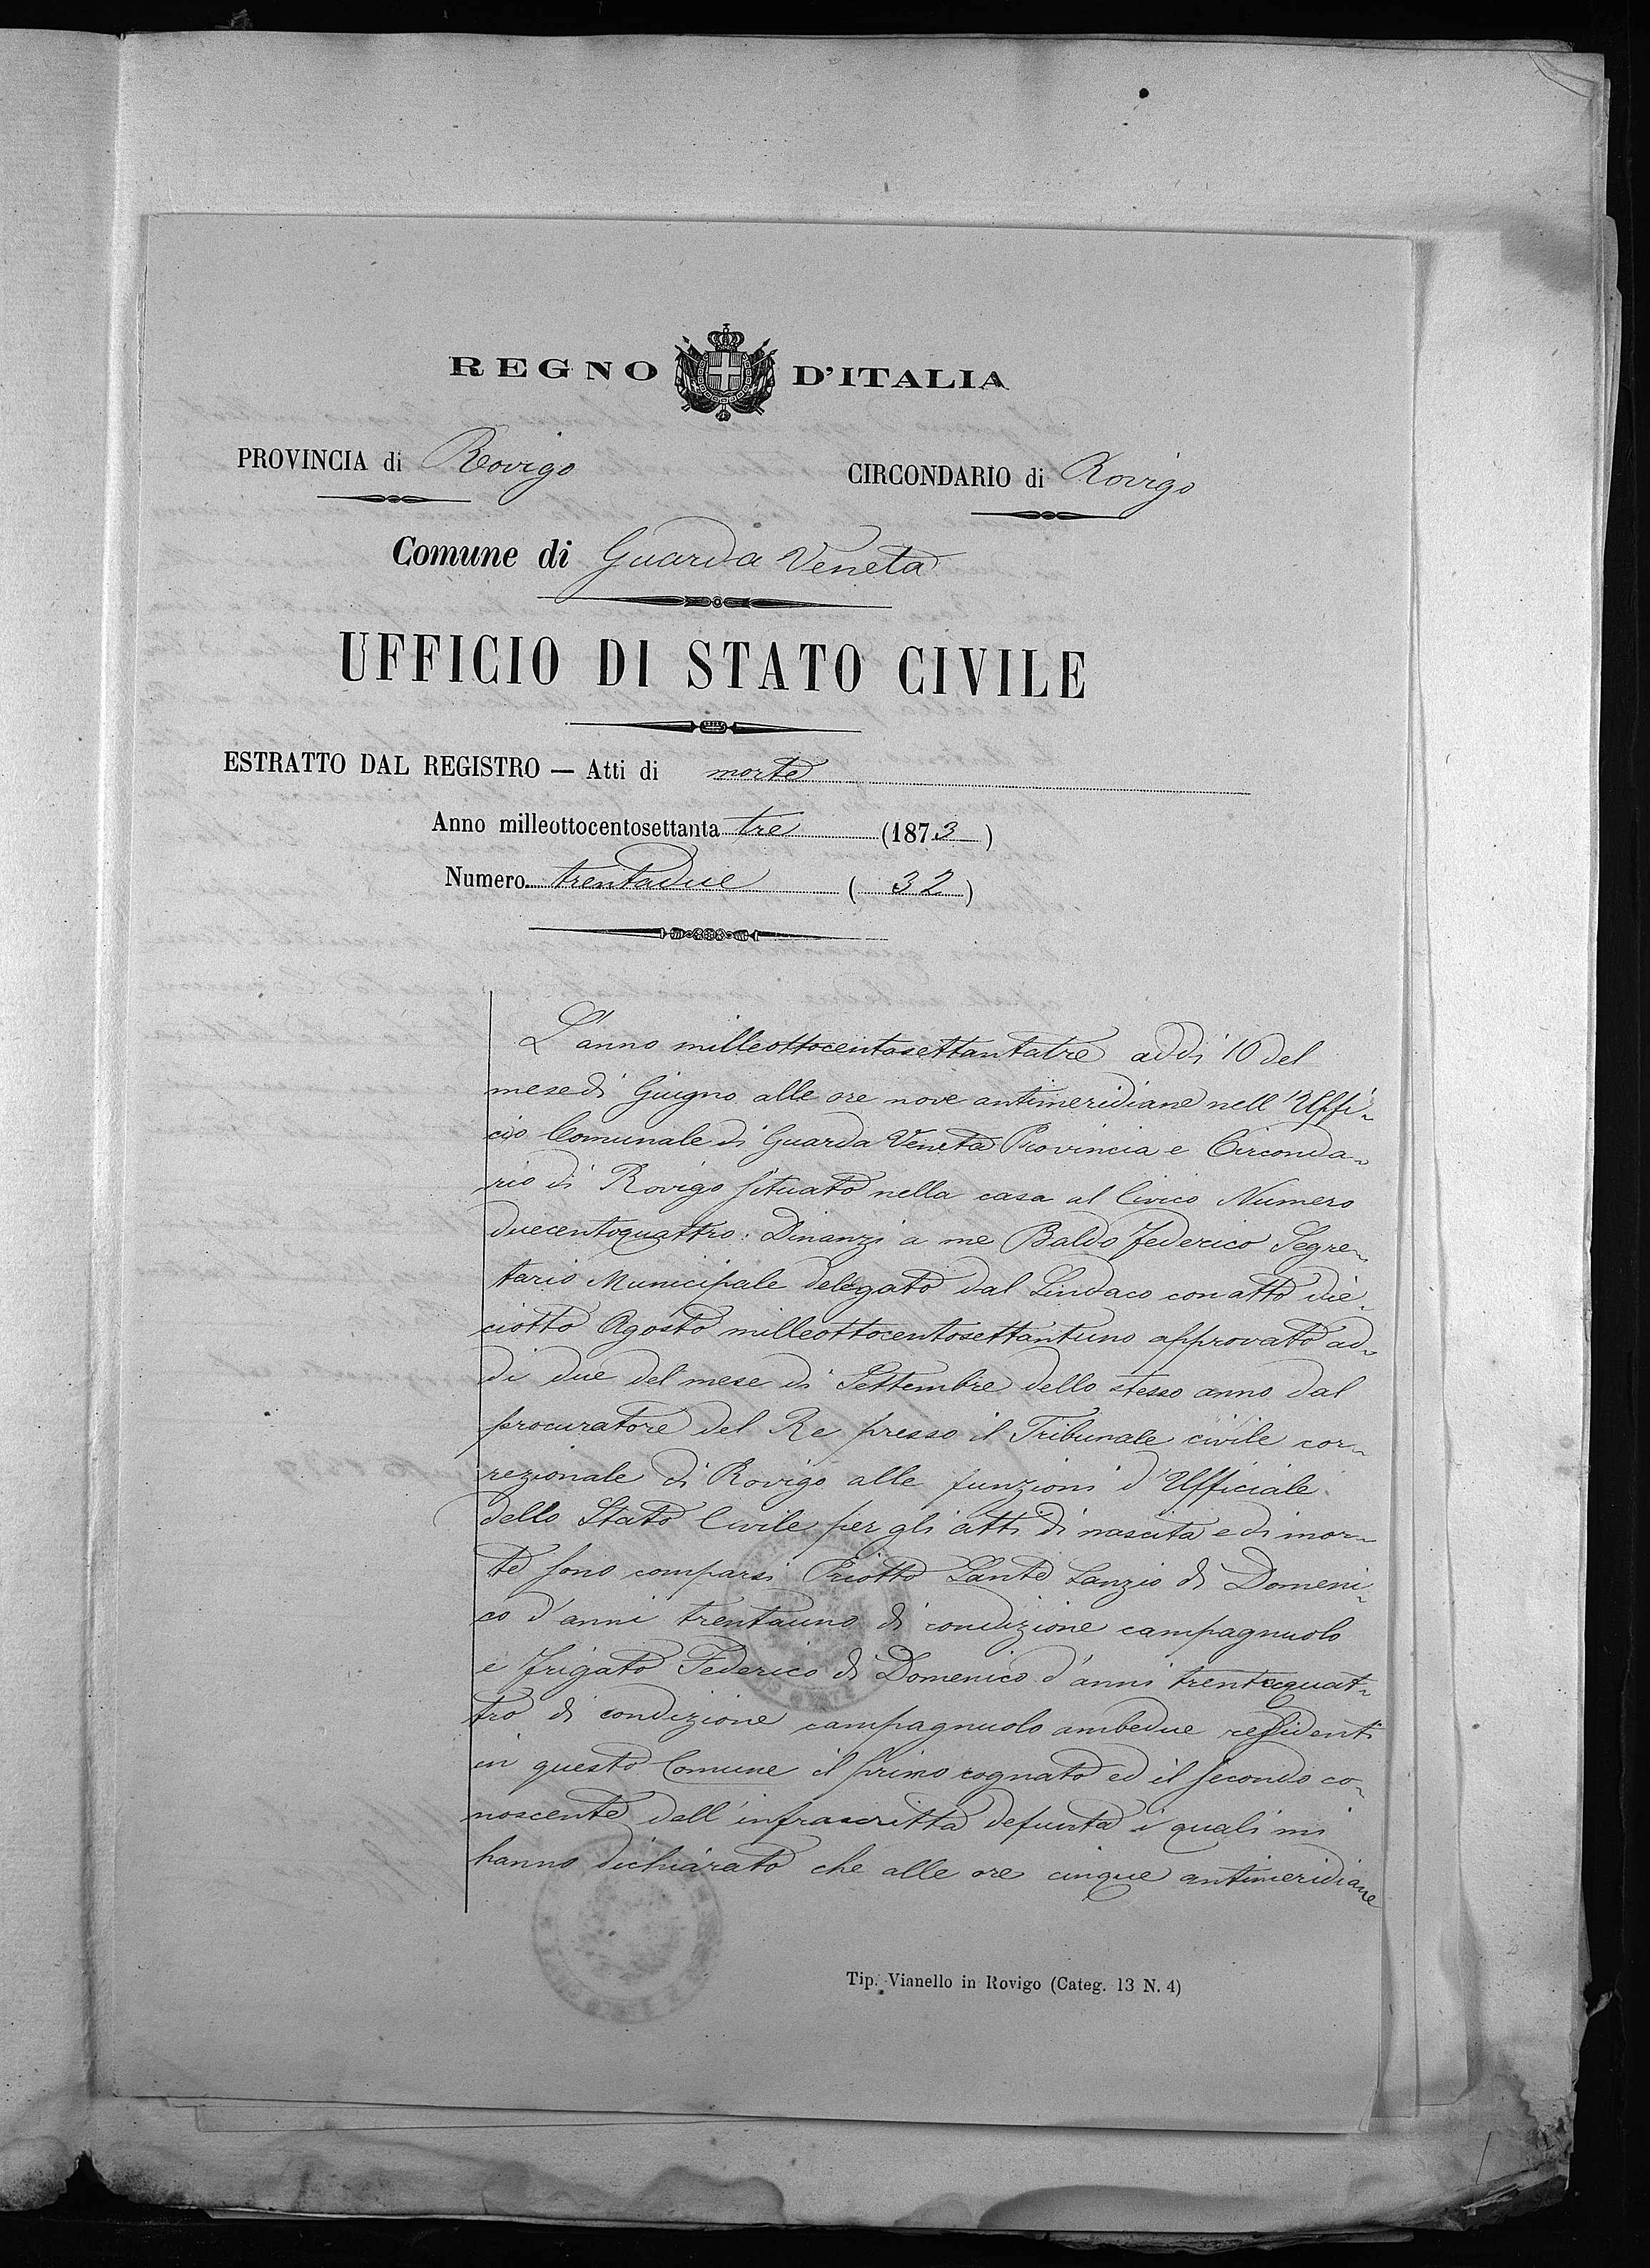 REGNO D'ITALIA
PROVINCIA di Rovigo CIRCONDARIO di Rovigo
Comune di Guarda Veneta
UFFICIO DI STATO CIVILE
ESTRATTO DAL REGISTRO — Atti di morte
Anno milleottocentosettanta tre (1873)
Numero trentadue (32)
L'anno milleottocentosettantatre addì 10 del
mese di Giugno alle ore nove antimeridiane nell'Uffi-
cio Comunale di Guarda Veneta Provincia e Circonda-
rio di Rovigo situato nella casa al Civico Numero
duecentoquattro: Dinanzi a me Baldo Federico Segre-
tario Municipale delegato dal Sindaco con atto die-
ciotto Agosto milleottocentosettantuno approvato ad-
di due del mese di Settembre dello stesso anno dal
procuratore del Re presso il Tribunale civile cor-
rezionale di Rovigo alle funzioni d'Ufficiale
dello Stato Civile per gli atti di nascita e di mor-
te sono comparsi Sante Sanzio di Domeni-
co d'anni trentauno di condizione campagnuolo
e Frigato Federico di Domenico d'anni trentaquat-
tro di condizione campagnuolo ambedue residenti
in questo Comune il primo cognato ed il secondo co-
noscente dell'infrascritta defunta i quali mi
hanno dichiarato che alle ore cinque antimeridiane
Tip. Vianello in Rovigo (Categ. 13 N. 4)